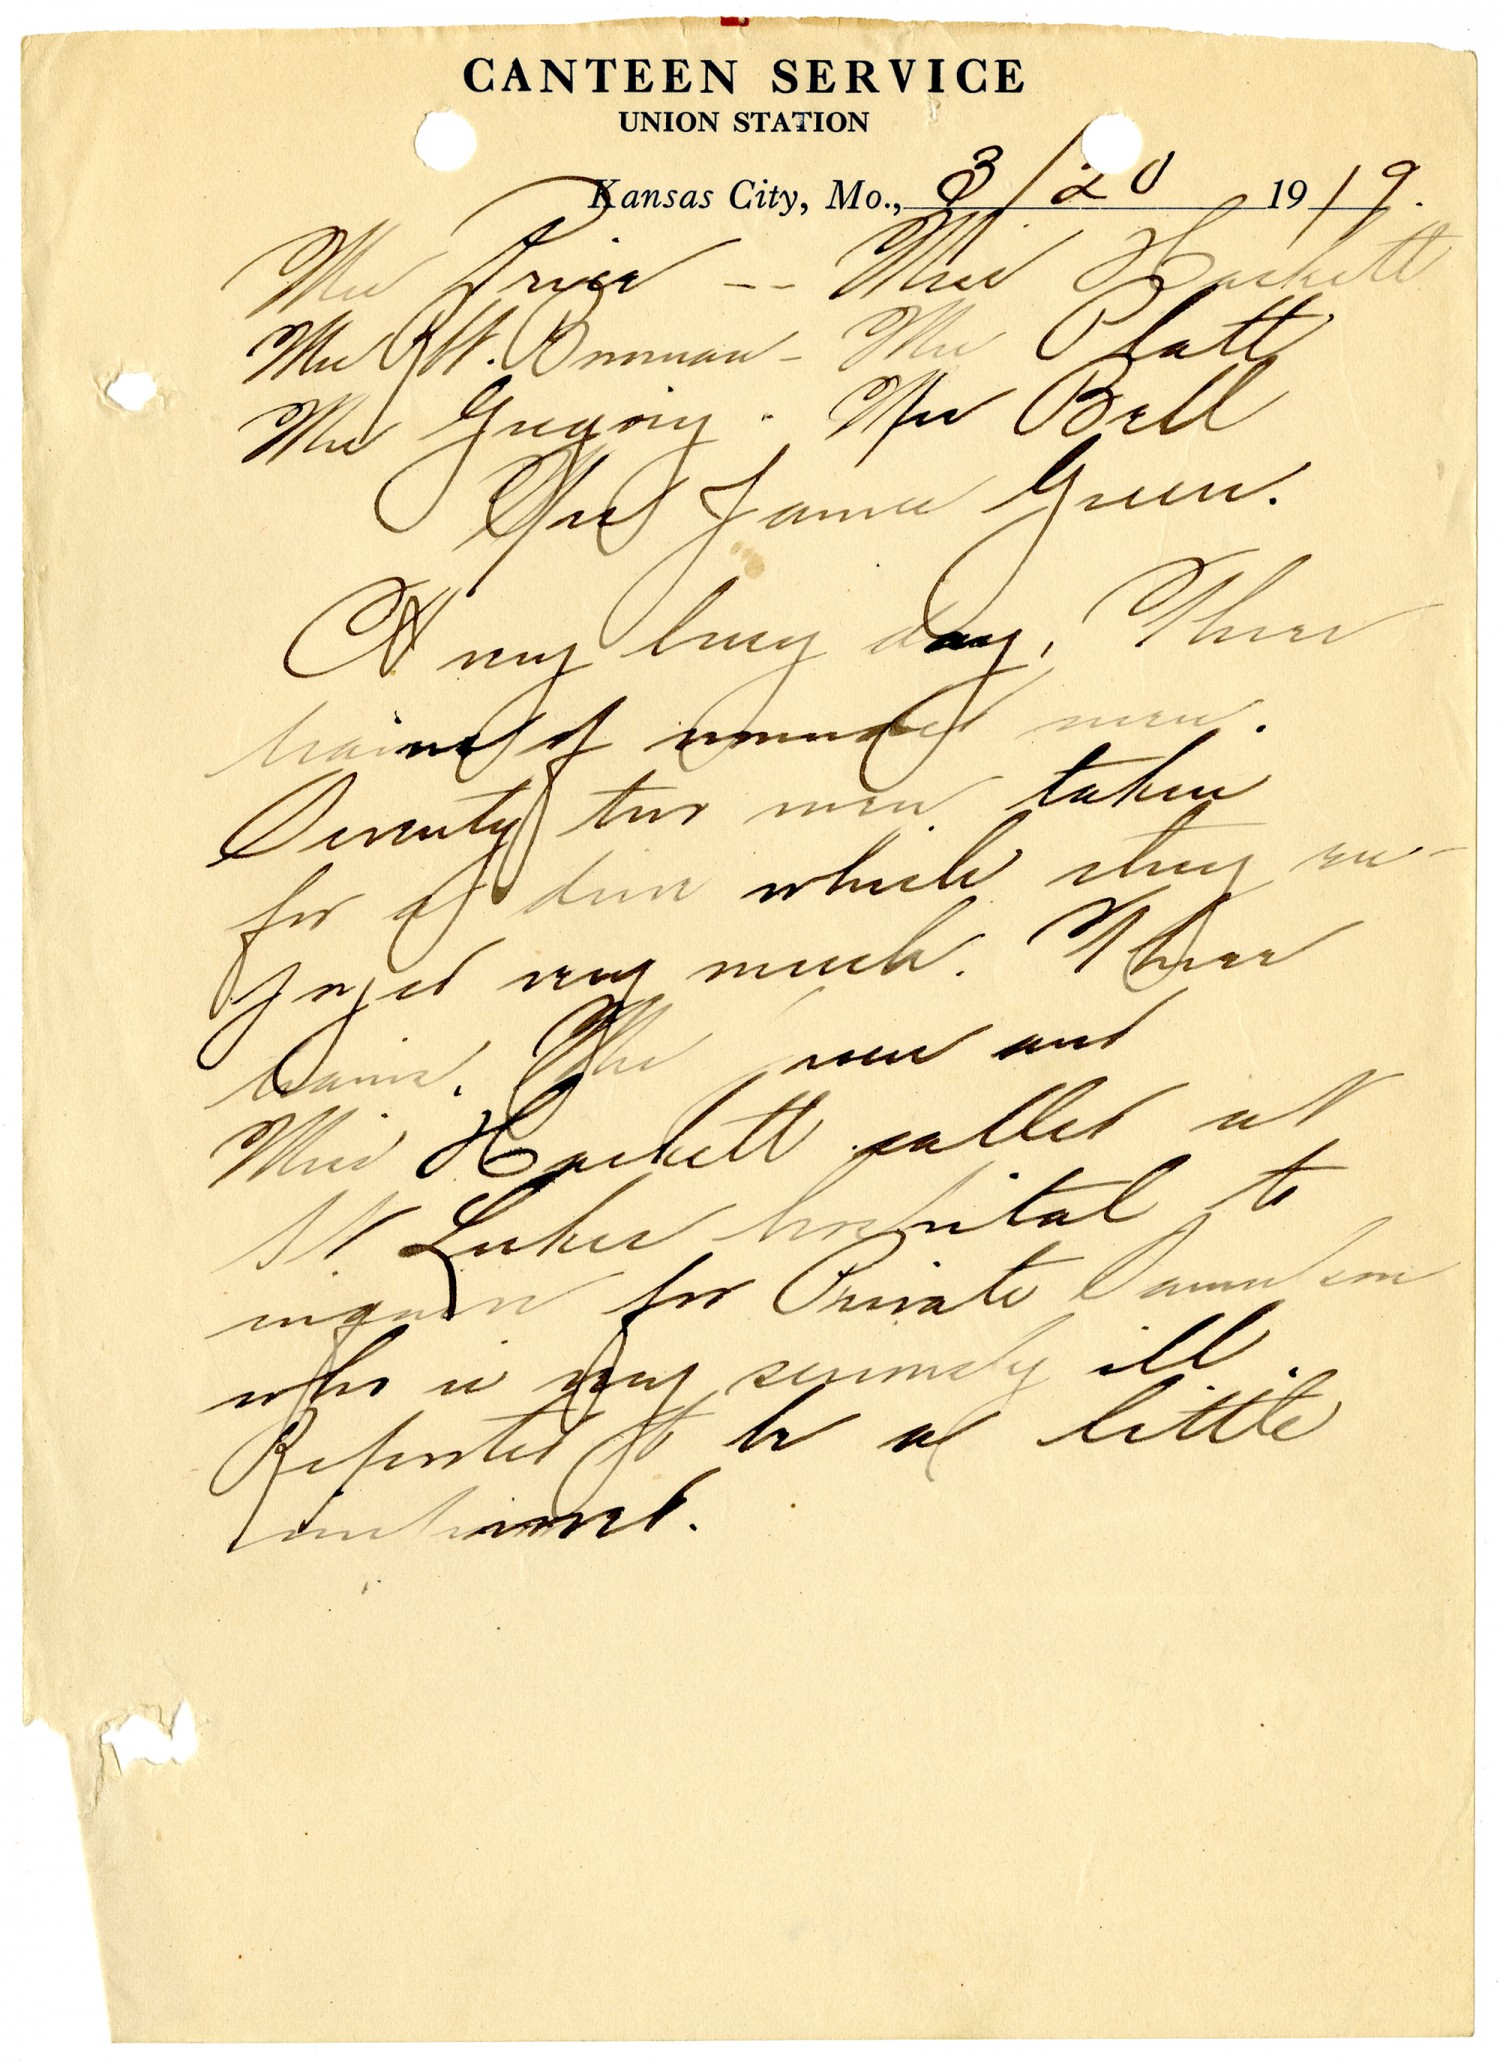 CANTEEN SERVICE
UNION STATION
Kansas City, Mo., 3/20 1919.
Mrs Price -- Miss Hackett
Mrs - Mrs Platt
Mrs Gregory - Mrs Bell
Mrs James Green.
A very busy day. Three
trains of wounded men.
Seventy two men taken
for a drive which they en-
joyed very much. Three
trains. Mrs and
Miss Hackett called at
St. Lukes hospital to
inquire for Private
who is very seriously ill.
Reported to be a little
improved.